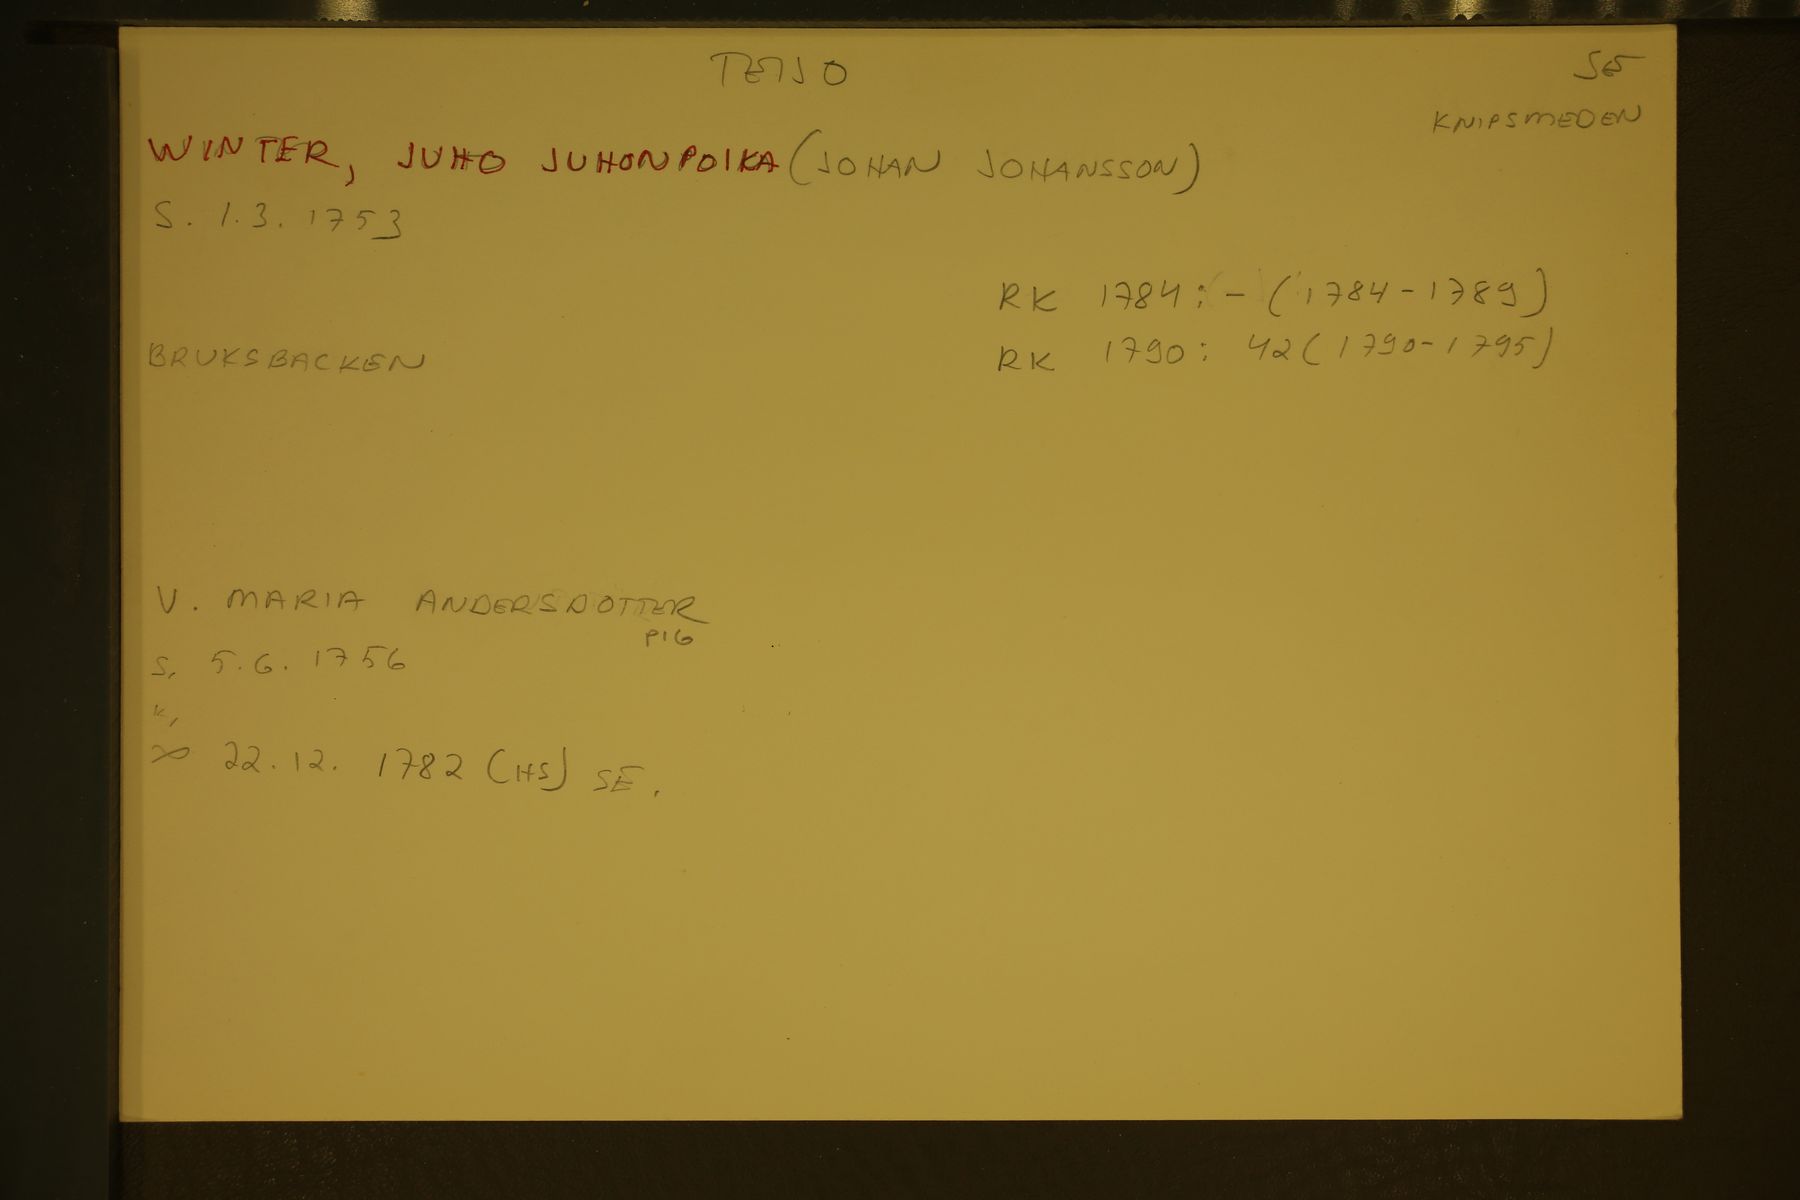 TEIJO
SE
KNIPSMEDEN
WINTER, JUHO JUHONPOIKA (JOHAN JOHANSSON)
S. 1.3. 1753
RK 1784: - (1784-1789)
BRUKSBACKEN
RK 1790: 42 (1790-1795)
V. MARIA ANDERSDOTTER
PIG
S. 5.6. 1756
K,
∞ 22.12. 1782 (HS) SE.